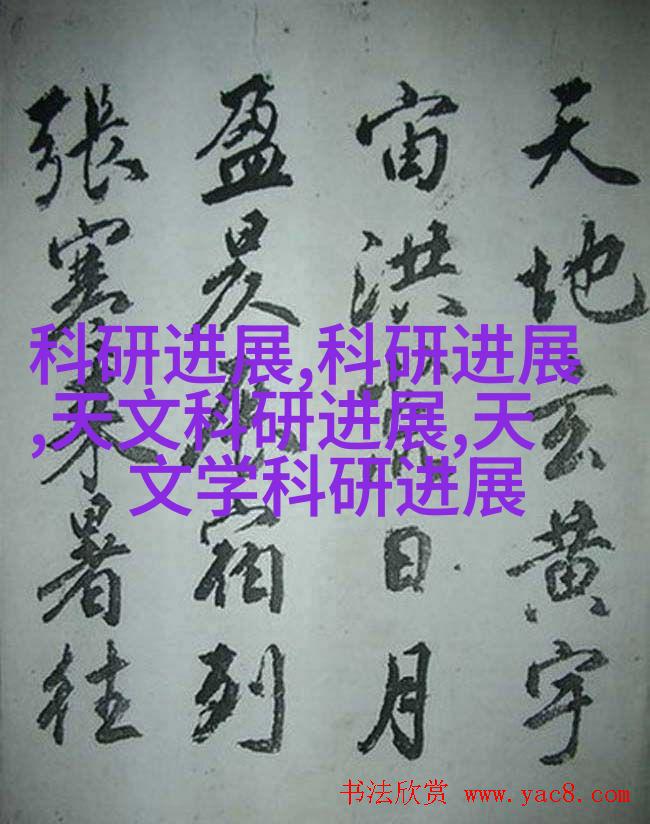 天地玄黄宇
宙洪荒日月
盈昃辰宿列
張寒来暑往
科研进展,科研进展
,天文科研进展,天
文学科研进展
书法欣赏 www.yac8.com